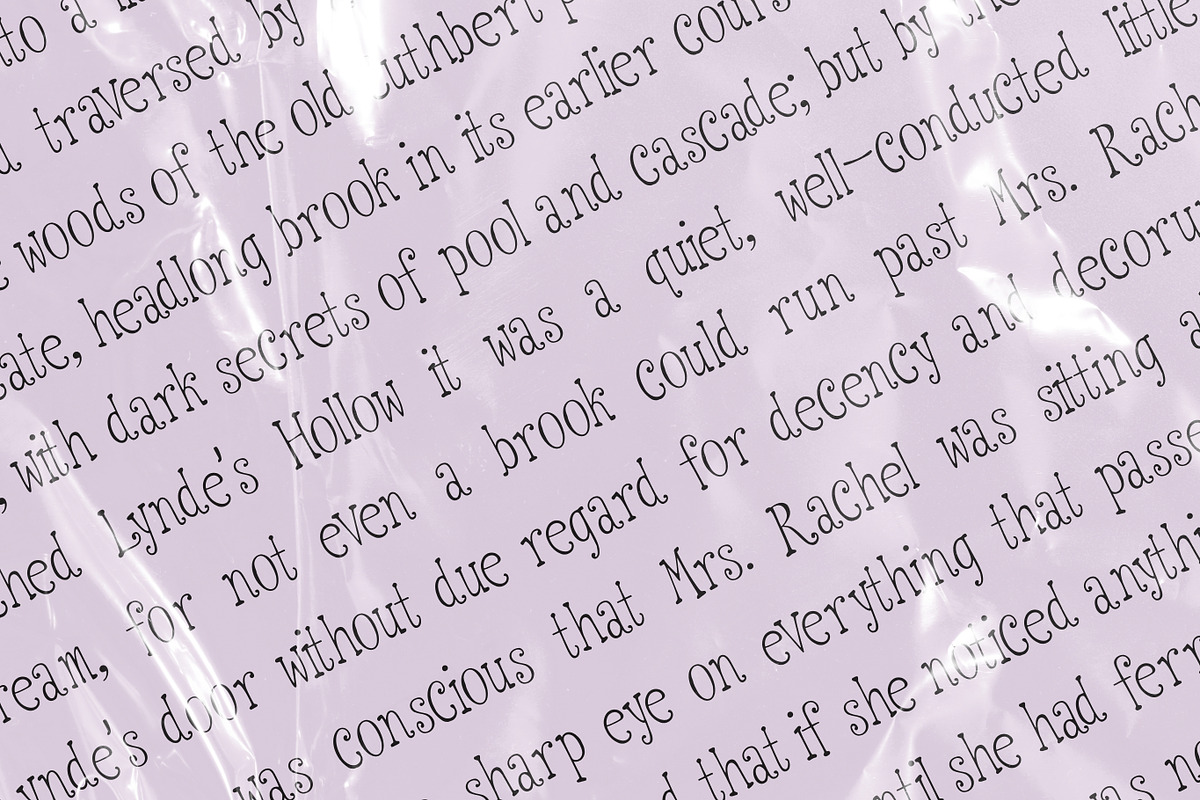 nto a
traversed by
woods of the old Cuthbert p
cate, headlong brook in its earlier cours
, with dark secrets of pool and cascade; but by the
ched Lynde's Hollow it was a quiet, well-conducted little
ream, for not even a brook could run past Mrs. Rach
ynde's door without due regard for decency and decoru
was conscious that Mrs. Rachel was sitting a
sharp eye on everything that passe
d that if she noticed anythi
ntil she had ferr
as no